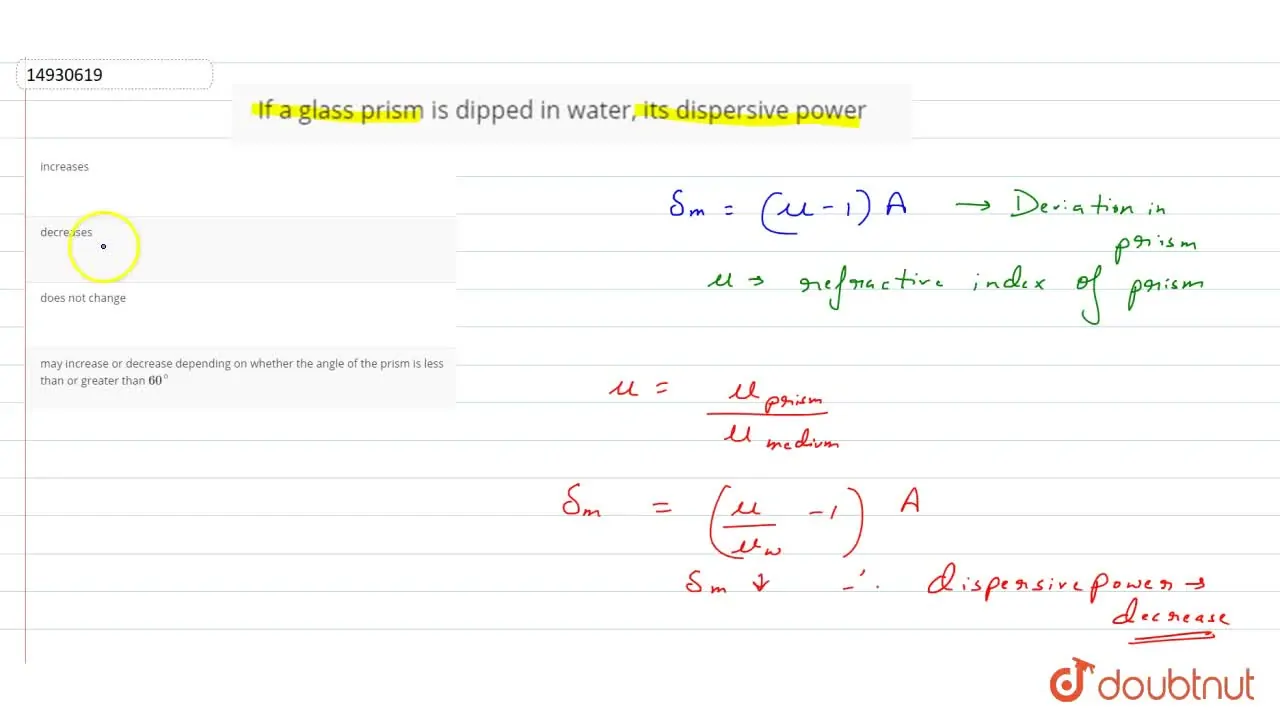 14930619
If a glass prism is dipped in water, its dispersive power
increases
decreases
does not change
may increase or decrease depending on whether the angle of the prism is less
than or greater than 60°
δm = (μ - 1) A → Deviation in
prism
μ → refractive index of prism
μ = μ prism
μ medium
δm = (μ - 1) A
μw
δm ↓ ∴ dispersive power →
decrease
doubtnut